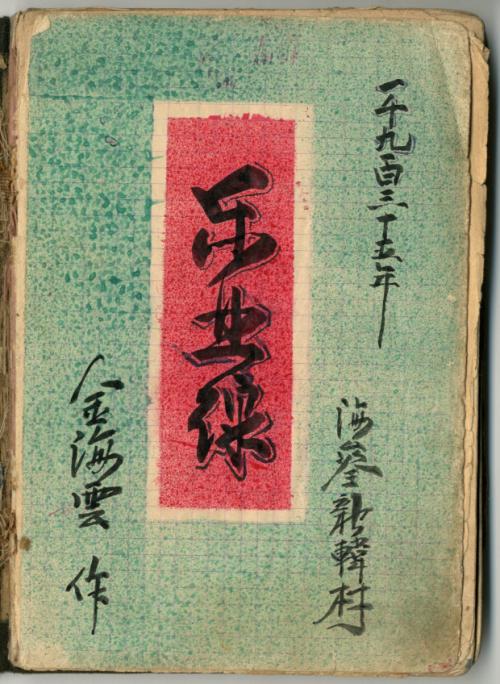 一千九百三十五年
海參新韓村
乐
金海雲 作